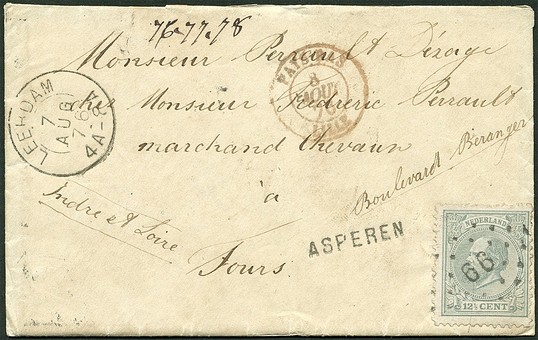 76-77-78
Monsieur Perrault Dézage
chez Monsieur Frederic Perrault
marchand Chevaux
à
Boulevard Béranger
Indre et Loire
Tours.
LEERDAM
7
AUG
76
4A-8A
8
AOUT
76
ASPEREN
NEDERLAND
66
12½ CENT